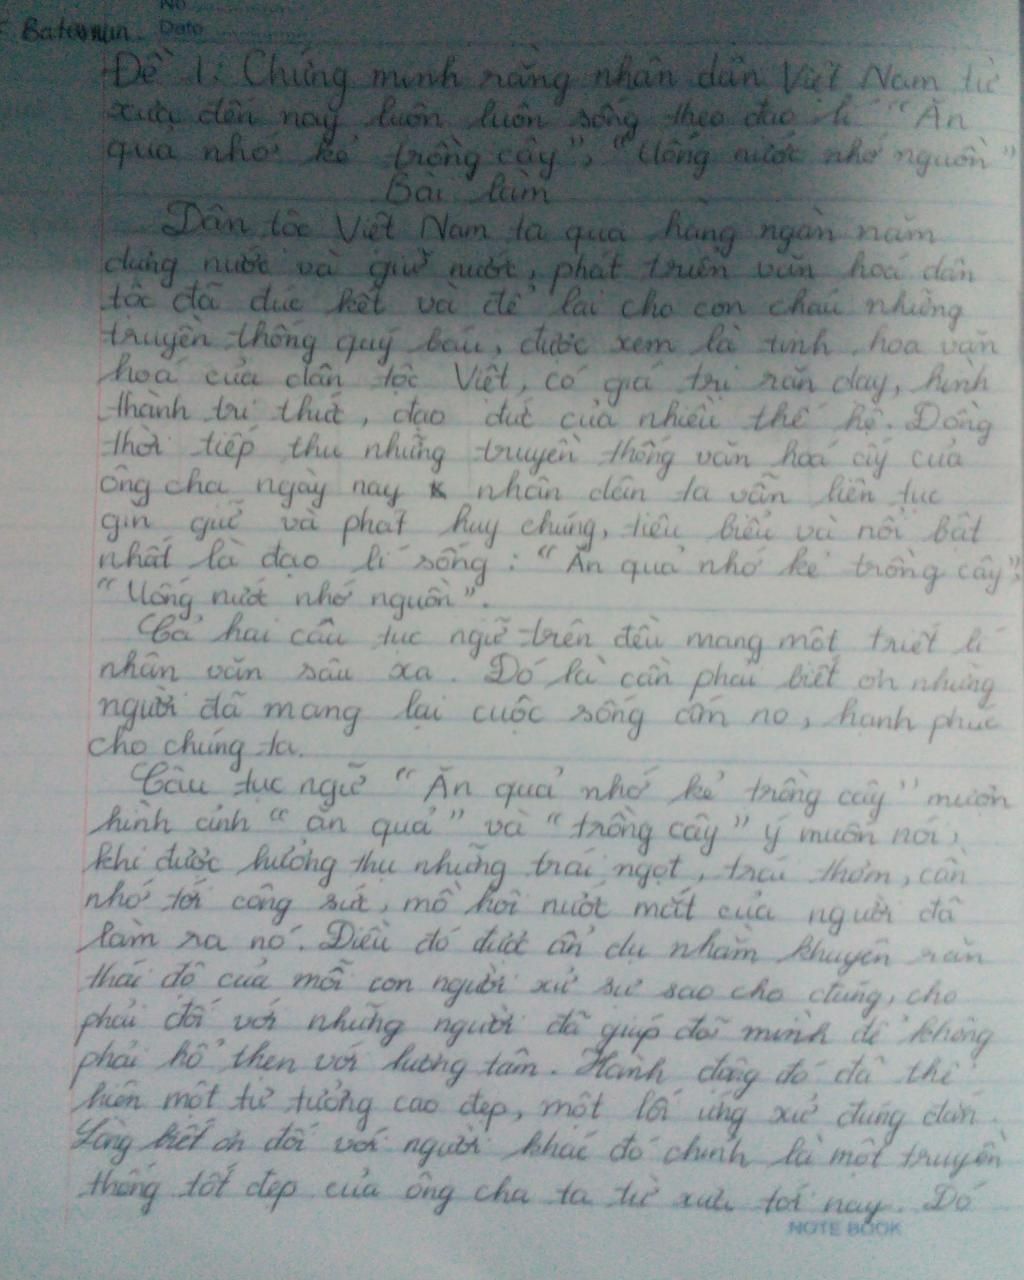 No
Date
Đề 1: Chứng minh rằng nhân dân Việt Nam từ
xưa đến nay luôn luôn sống theo đạo lí "Ăn
quả nhớ kẻ trồng cây", "Uống nước nhớ nguồn"
Bài làm
Dân tộc Việt Nam ta qua hàng ngàn năm
dựng nước và giữ nước, phát triển văn hoá dân
tộc đã đúc kết và để lại cho con cháu những
truyền thống quý báu, được xem là tinh hoa văn
hoá của dân tộc Việt, có giá trị răn dạy, hình
thành tri thức, đạo đức của nhiều thế hệ. Đồng
thời tiếp thu những truyền thống văn hoá ấy của
ông cha ngày nay nhân dân ta vẫn liên tục
gìn giữ và phát huy chúng, tiêu biểu và nổi bật
nhất là đạo lí sống: "Ăn quả nhớ kẻ trồng cây",
"Uống nước nhớ nguồn".
Cả hai câu tục ngữ trên đều mang một triết lí
nhân văn sâu xa. Đó là cần phải biết ơn những
người đã mang lại cuộc sống ấm no, hạnh phúc
cho chúng ta.
Câu tục ngữ "Ăn quả nhớ kẻ trồng cây" mượn
hình ảnh "ăn quả" và "trồng cây" ý muốn nói,
khi được hưởng thụ những trái ngọt, trái thơm, cần
nhớ tới công sức, mồ hôi nước mắt của người đã
làm ra nó. Điều đó được ẩn dụ nhằm khuyên răn
thái độ của mỗi con người xử sự sao cho đúng, cho
phải đối với những người đã giúp đỡ mình để không
phải hổ thẹn với lương tâm. Hành động đó đã thể
hiện một tư tưởng cao đẹp, một lối ứng xử đúng đắn.
Lòng biết ơn đối với người khác đó chính là một truyền
thống tốt đẹp của ông cha ta từ xưa tới nay. Đó
NOTE BOOK